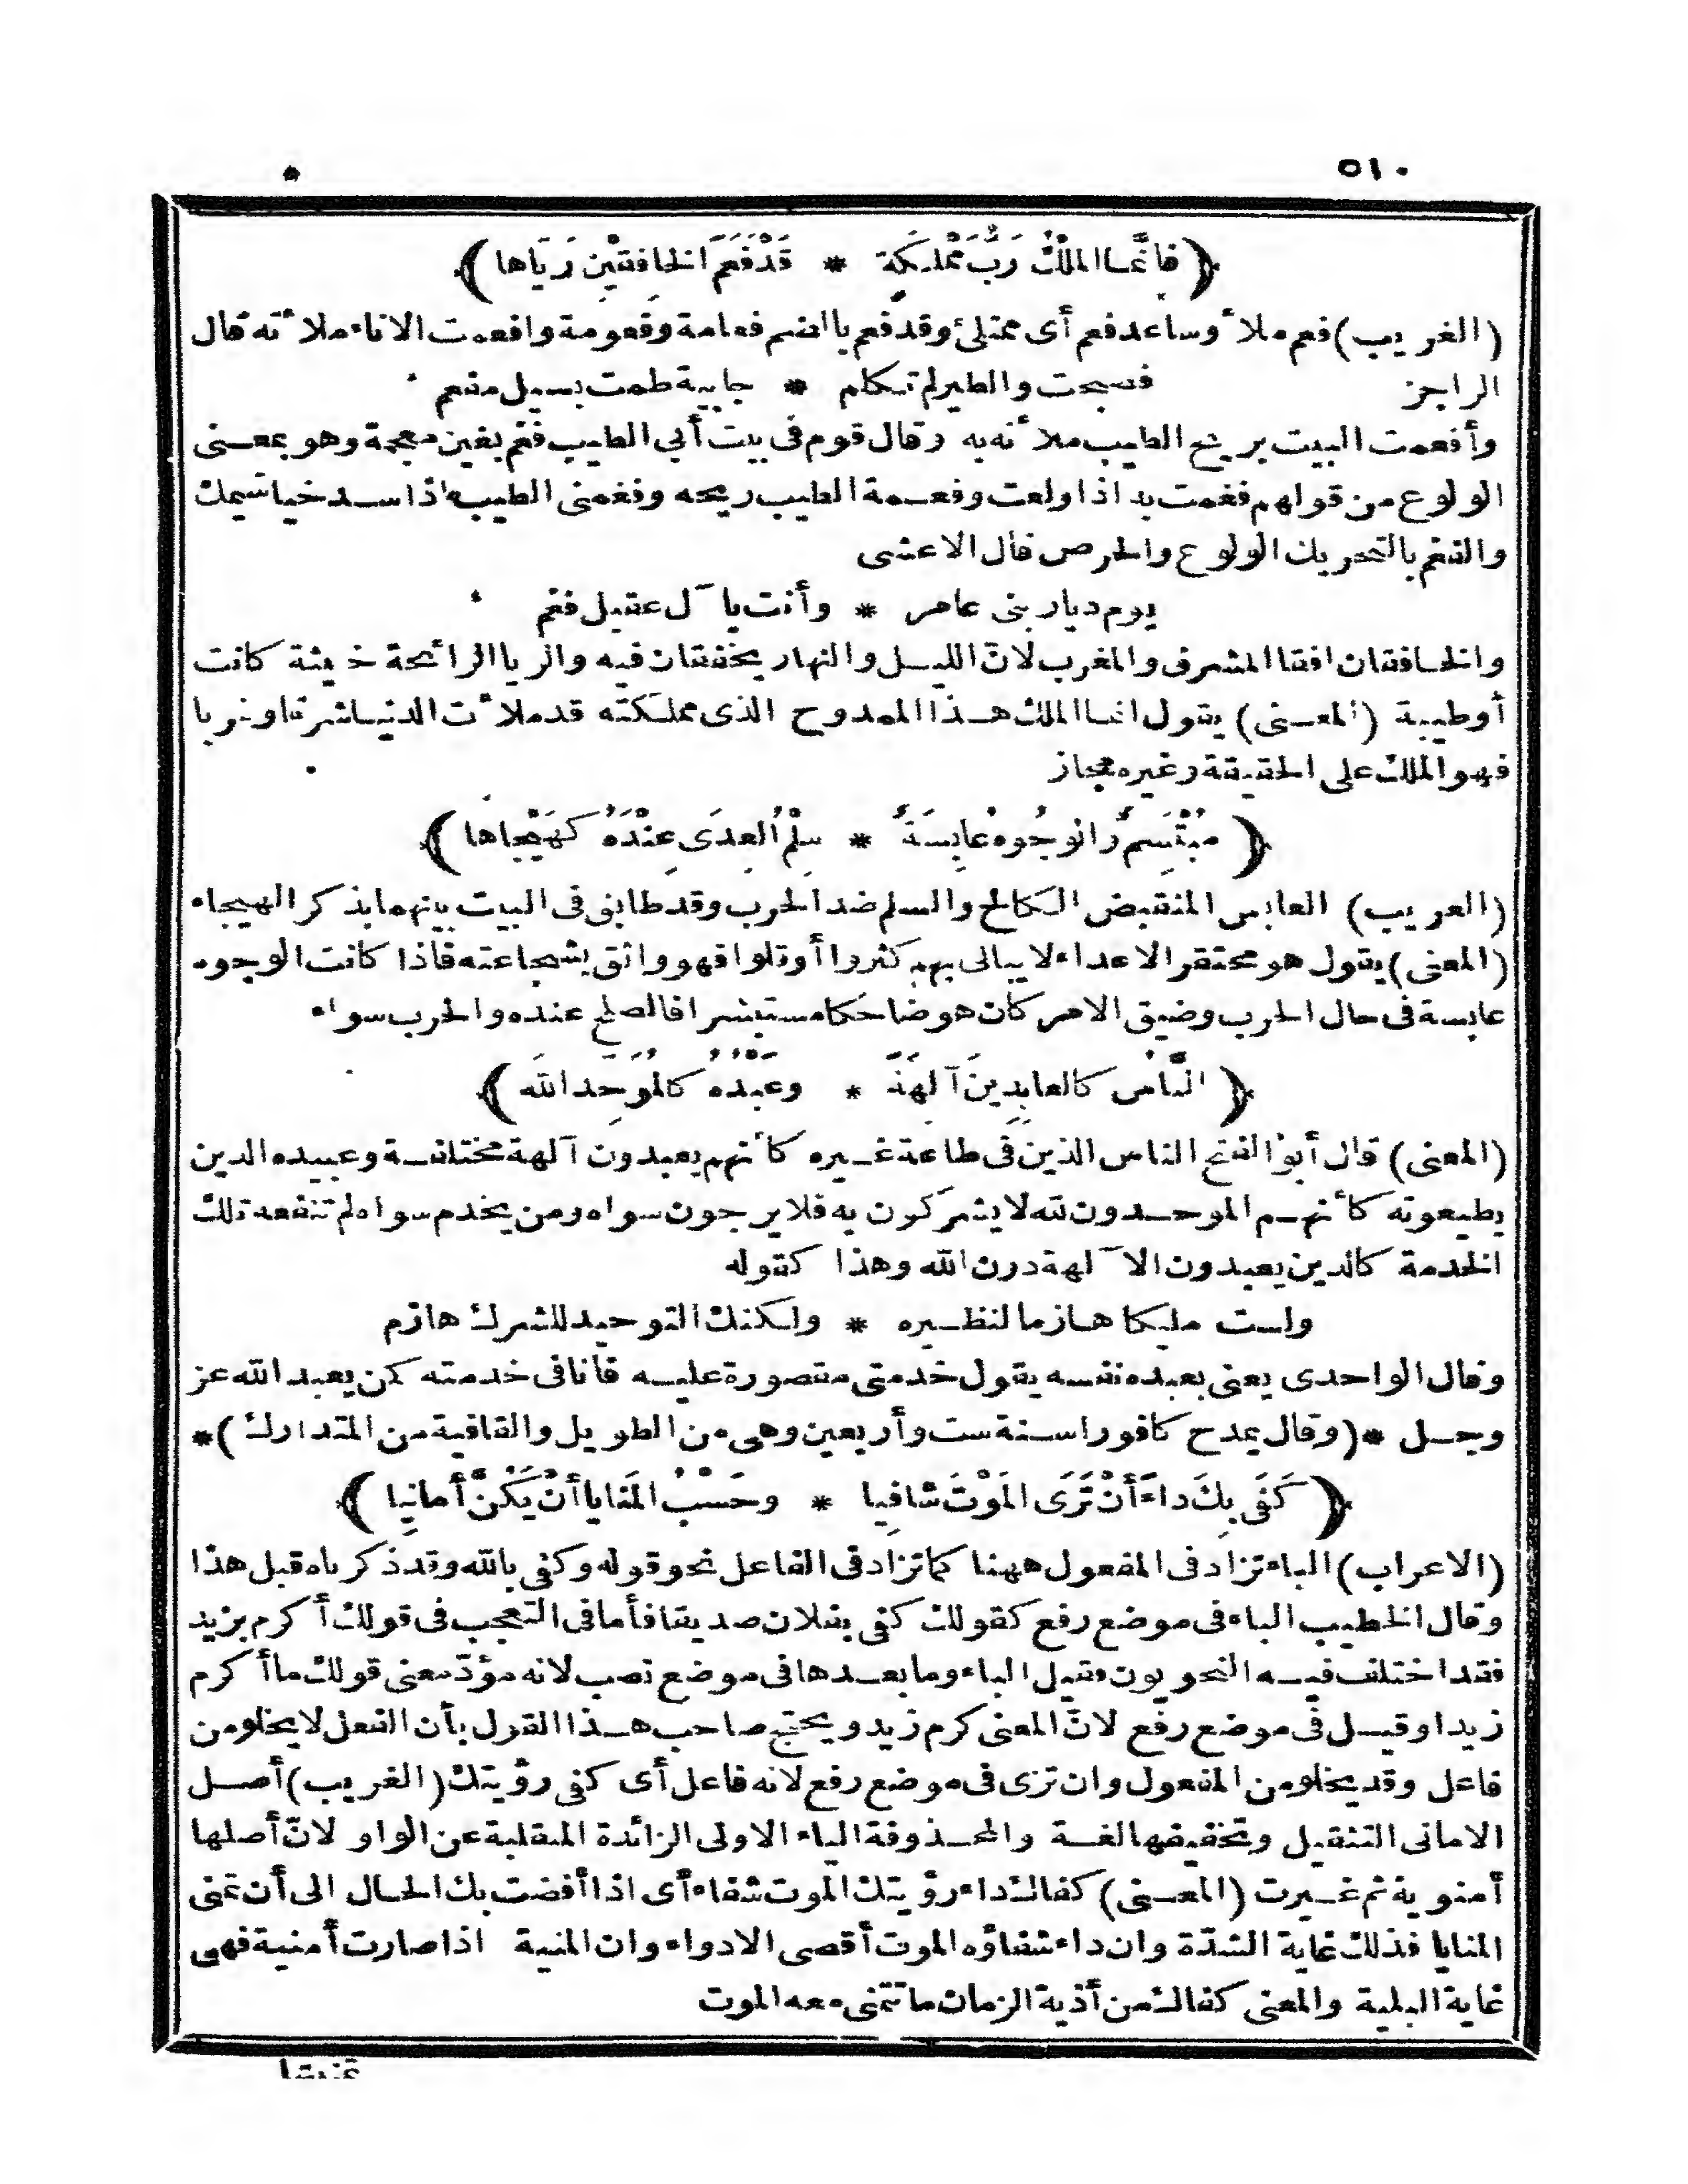 ٥١٠
﴿فَانَّمَا المَلْكُ رَبُّ مَمْلَكَةٍ * قَدْ فَعَمَ الخافِقَيْنِ رَيّاها﴾
(الغريب) فعم ملأ وساعد فعم أى ممتلئ وقد فعم بالضم فعامة وفعومة وافعمت الاناء ملأته قال
الراجز فصبحت والطير لم تكلم * جابية طمت بسيل مفعم
وأفعمت البيت بريح الطيب ملأته به وقال قوم فى بيت أبى الطيب فغم بغين معجمة وهو بمعنى
الولوع من قولهم فغمت به اذا ولعت وفغمة الطيب ريحه وفغمنى الطيب اذا سد خياشيمك
والفغم بالتحريك الولوع والحرص قال الاعشى
يوم ديار بنى عامر * وأنت يا آل عقيل فغم
والخافقان افقا المشرق والمغرب لانّ الليل والنهار يخفقان فيه والريا الرائحة خبيثة كانت
أو طيبة (المعنى) يقول انما الملك هذا الممدوح الذى مملكته قد ملأت الدنيا شرقا وغربا
فهو الملك على الحقيقة وغيره مجاز
﴿مُبْتَسِمٌ والوُجُوهُ عابِسَةٌ * سِلْمُ العِدَى عِنْدَهُ كَهَيْجاها﴾
(الغريب) العابس المنقبض الكالح والسلم ضد الحرب وقد طابق فى البيت بينهما بذكر الهيجاء
(المعنى) يقول هو محتقر الاعداء لا يبالى بهم كثروا أو قلوا فهو واثق بشجاعته فاذا كانت الوجوه
عابسة فى حال الحرب وضيق الامر كان هو ضاحكا مستبشرا فالصلح عنده والحرب سواء
﴿النّاس كالعابِدِينَ آلِهَةً * وعَبْدُهُ كالمُوَحِّد اللهَ﴾
(المعنى) قال أبو الفتح الناس الذين فى طاعة غيره كأنهم يعبدون آلهة مختلفة وعبيده الذين
يطيعونه كأنهم الموحدون لله لا يشركون به فلا يرجون سواه ومن يخدم سواه لم تنفعه تلك
الخدمة كالذين يعبدون الآلهة دون الله وهذا كقوله
ولست مليكا هازما لنظيره * ولكنك التوحيد للشرك هازم
وقال الواحدى يعنى بعبده نفسه يقول خدمتى مقصورة عليه فأنا فى خدمته كمن يعبد الله عز
وجل *(وقال يمدح كافورا سنة ست وأربعين وهى من الطويل والقافية من المتدارك)*
﴿كَفَى بِكَ داءً أَنْ تَرَى المَوْتَ شافِيا * وحَسْبُ المَنايا أنْ يَكُنَّ أَمانِيا﴾
(الاعراب) الباء تزاد فى المفعول ههنا كما تزاد فى الفاعل نحو قوله وكفى بالله وقد ذكرناه قبل هذا
وقال الخطيب الباء فى موضع رفع كقولك كفى بفلان صديقا فأما فى التعجب فى قولك أكرم بزيد
فقد اختلف فيه النحويون فقيل الباء وما بعدها فى موضع نصب لانه مؤدّ معنى قولك ما أكرم
زيدا وقيل فى موضع رفع لانّ المعنى كرم زيد ويحتج صاحب هذا القول بأن الفعل لا يخلو من
فاعل وقد يخلو من المفعول وان ترى فى موضع رفع لانه فاعل أى كفى رؤيتك (الغريب) أصل
الامانى التثقيل وتخفيفها لغة والمحذوفة الياء الاولى الزائدة المنقلبة عن الواو لانّ أصلها
أمنوية ثم غيرت (المعنى) كفاك داء رؤيتك الموت شفاء أى اذا أفضت بك الحال الى أن تمنى
المنايا فذلك غاية الشدّة وان داء شفاؤه الموت أقصى الادواء وان المنية اذا صارت أمنية فهى
غاية البلية والمعنى كفاك من أذية الزمان ما تتمنى معه الموت